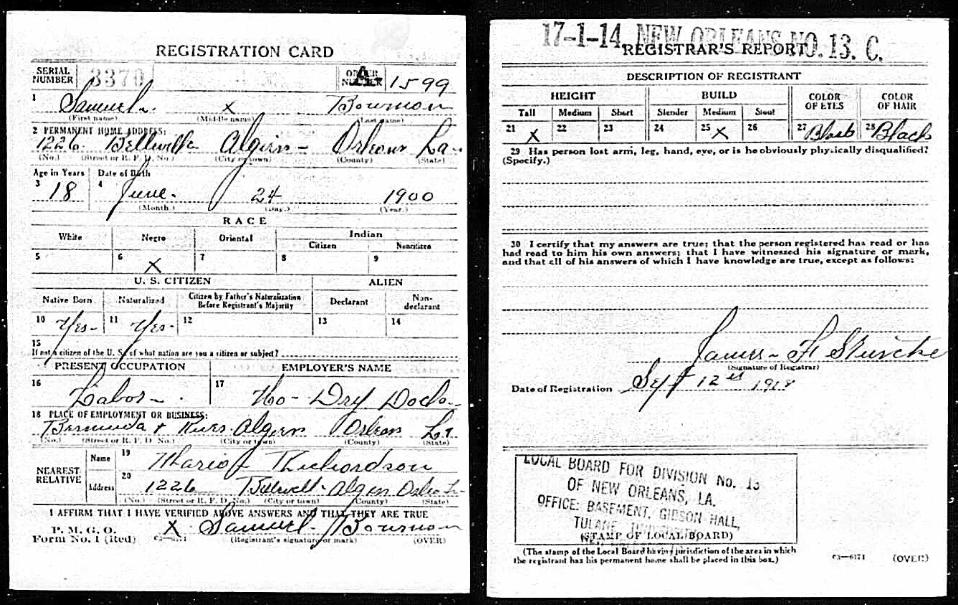 REGISTRATION CARD
SERIAL NUMBER 3370 ORDER NUMBER A 1599
1 Samuel x Bowman
(First name) (Middle name) (Last name)
2 PERMANENT HOME ADDRESS:
1226 Algiers - Orleans La -
(No.) (Street or R. F. D. No.) (City or town) (County) (State)
Age in Years Date of Birth
3 18 4 June 24 1900
(Month.) (Day.) (Year.)
RACE
White Negro Oriental Indian
Citizen Noncitizen
5 6 X 7 8 9
U. S. CITIZEN ALIEN
Native Born Naturalized Citizen by Father's Naturalization Before Registrant's Majority Declarant Non-declarant
10 Yes - 11 Yes - 12 13 14
15
If not a citizen of the U. S., of what nation are you a citizen or subject?
PRESENT OCCUPATION EMPLOYER'S NAME
16 Labor - 17 Dry Dock
18 PLACE OF EMPLOYMENT OR BUSINESS:
Bermuda & Algiers Orleans La
(No.) (Street or R. F. D. No.) (City or town) (County) (State)
NEAREST RELATIVE
Name 19 Richardson
Address 20 1226 Algiers Orleans La
(No.) (Street or R. F. D. No.) (City or town) (County) (State)
I AFFIRM THAT I HAVE VERIFIED ABOVE ANSWERS AND THAT THEY ARE TRUE
P. M. G. O.
Form No. 1 (Red) X Samuel Bowman
(Registrant's signature or mark) (OVER)
17-1-14 NEW ORLEANS NO. 13. C.
REGISTRAR'S REPORT
DESCRIPTION OF REGISTRANT
HEIGHT BUILD COLOR OF EYES COLOR OF HAIR
Tall Medium Short Slender Medium Stout
21 X 22 23 24 25 X 26 27 Black 28 Black
29 Has person lost arm, leg, hand, eye, or is he obviously physically disqualified?
(Specify.)
30 I certify that my answers are true; that the person registered has read or has
had read to him his own answers; that I have witnessed his signature or mark,
and that all of his answers of which I have knowledge are true, except as follows:
James
(Signature of Registrar)
Date of Registration Sept 12 1918
LOCAL BOARD FOR DIVISION No. 13
OF NEW ORLEANS, LA.
OFFICE: BASEMENT, GIBSON HALL,
TULANE
(STAMP OF LOCAL BOARD)
(The stamp of the Local Board having jurisdiction of the area in which
the registrant has his permanent home shall be placed in this box.)
03-6171 (OVER)